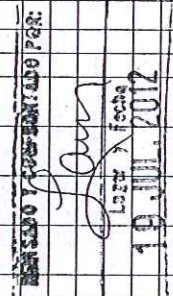 REVISADO Y CONFRONTADO POR:
Lugar y Fecha
19 JUL. 2012